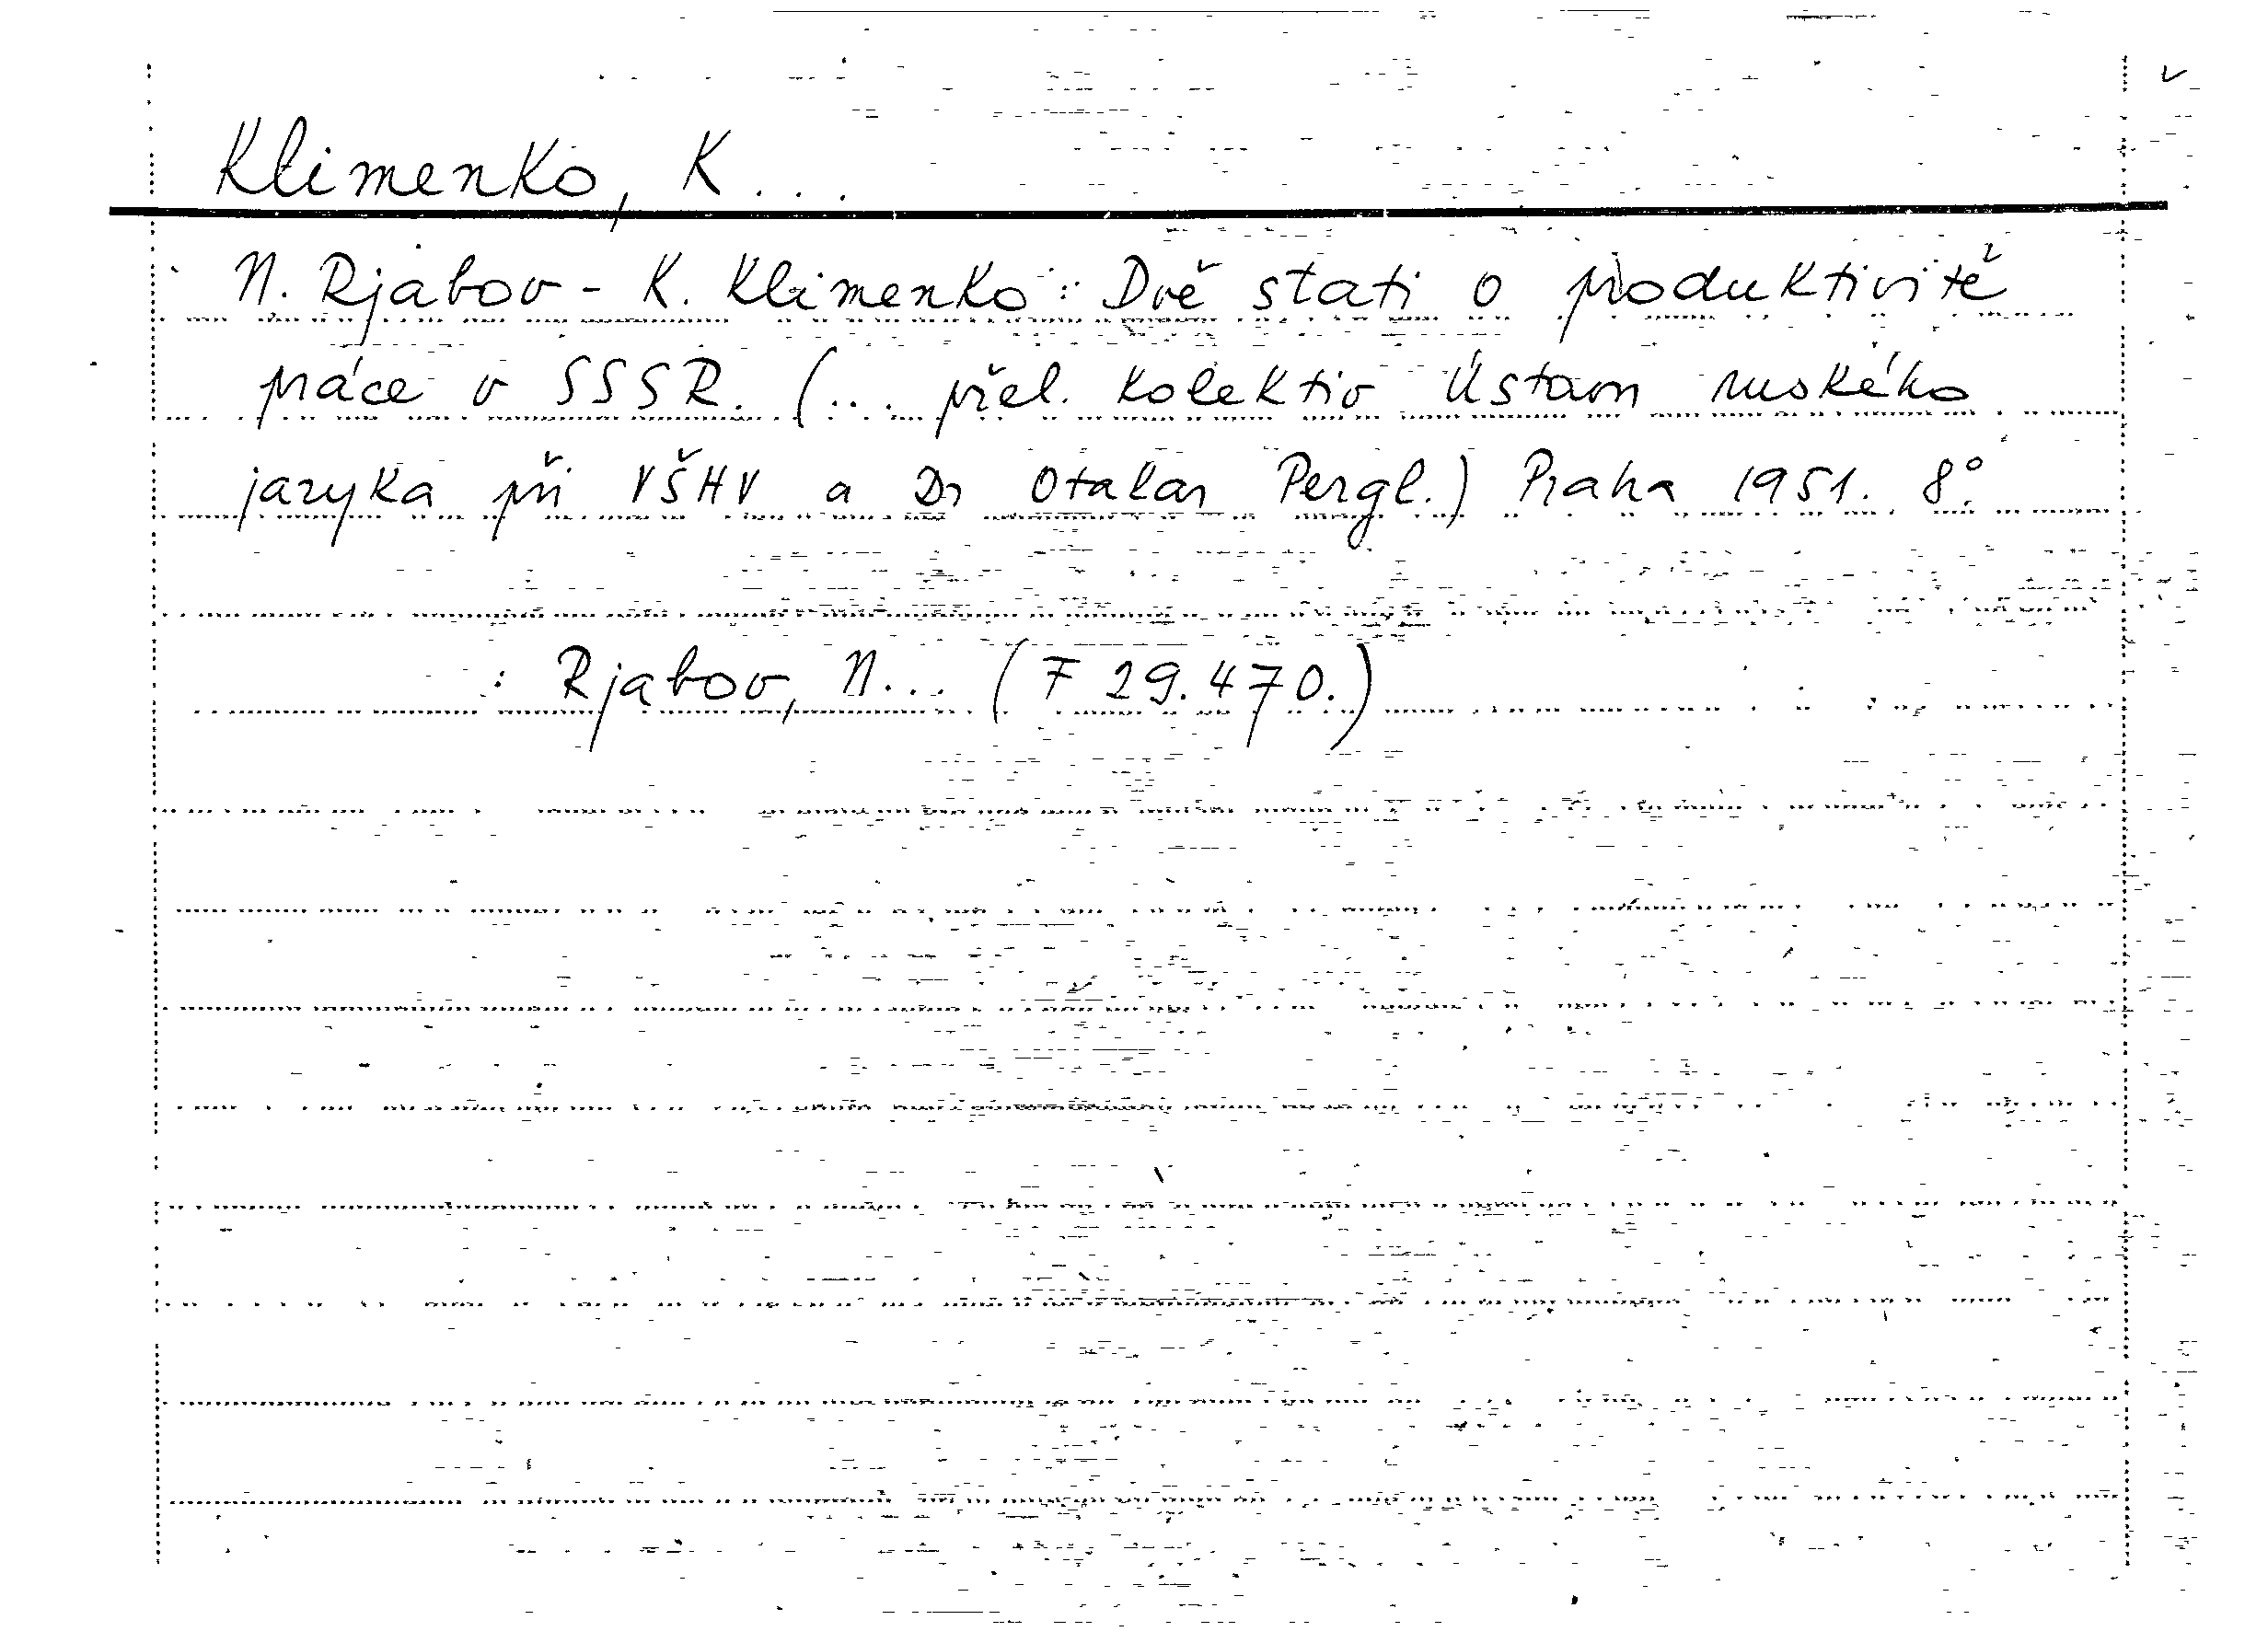 Klimenko, K...
N. Rjabov - K. Klimenko: Dvě stati o produktivitě
práce v SSSR. (... přel. kolektiv Ústavu ruského
jazyka při VŠHV a Dr Otakar Pergl.) Praha 1951. 8°.
: Rjabov, N... (F 29.470.)